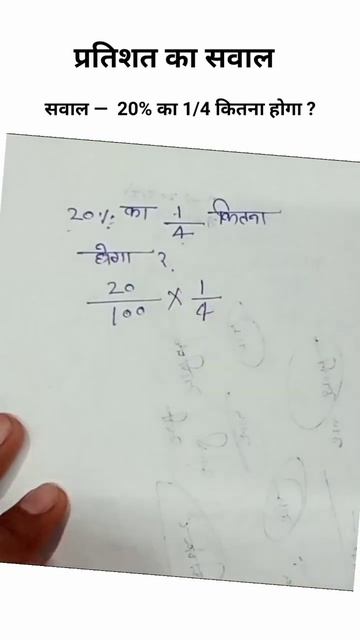 प्रतिशत का सवाल
सवाल — 20% का 1/4 कितना होगा ?
20% का 1/4 कितना
होगा ?
20/100 × 1/4